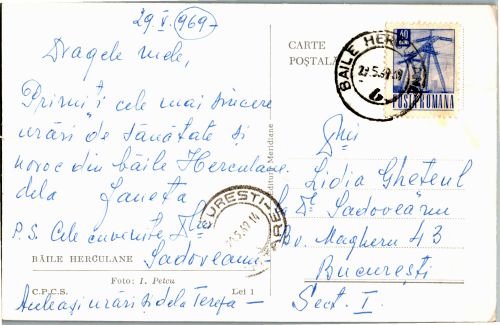 29 V. 969-
Dragele mele,
Primiți cele mai sincere
urări de sănătate și
noroc din băile Herculane.
dela Janeta
P.S. Cele cuvenite D-lui
Sadoveanu.
BĂILE HERCULANE
Foto: I. Petcu
C.P.C.S.
Lei 1
Aceleași urări și dela Tereza -
CARTE
POȘTALĂ
Editura Meridiane
BAILE HERCULANE
29.5.69.18
40
POSTA ROMANA
BUCUREȘTI
Lidia Ghețeul
Sadoveanu
Bv. Magheru 43
București
Sect. I.